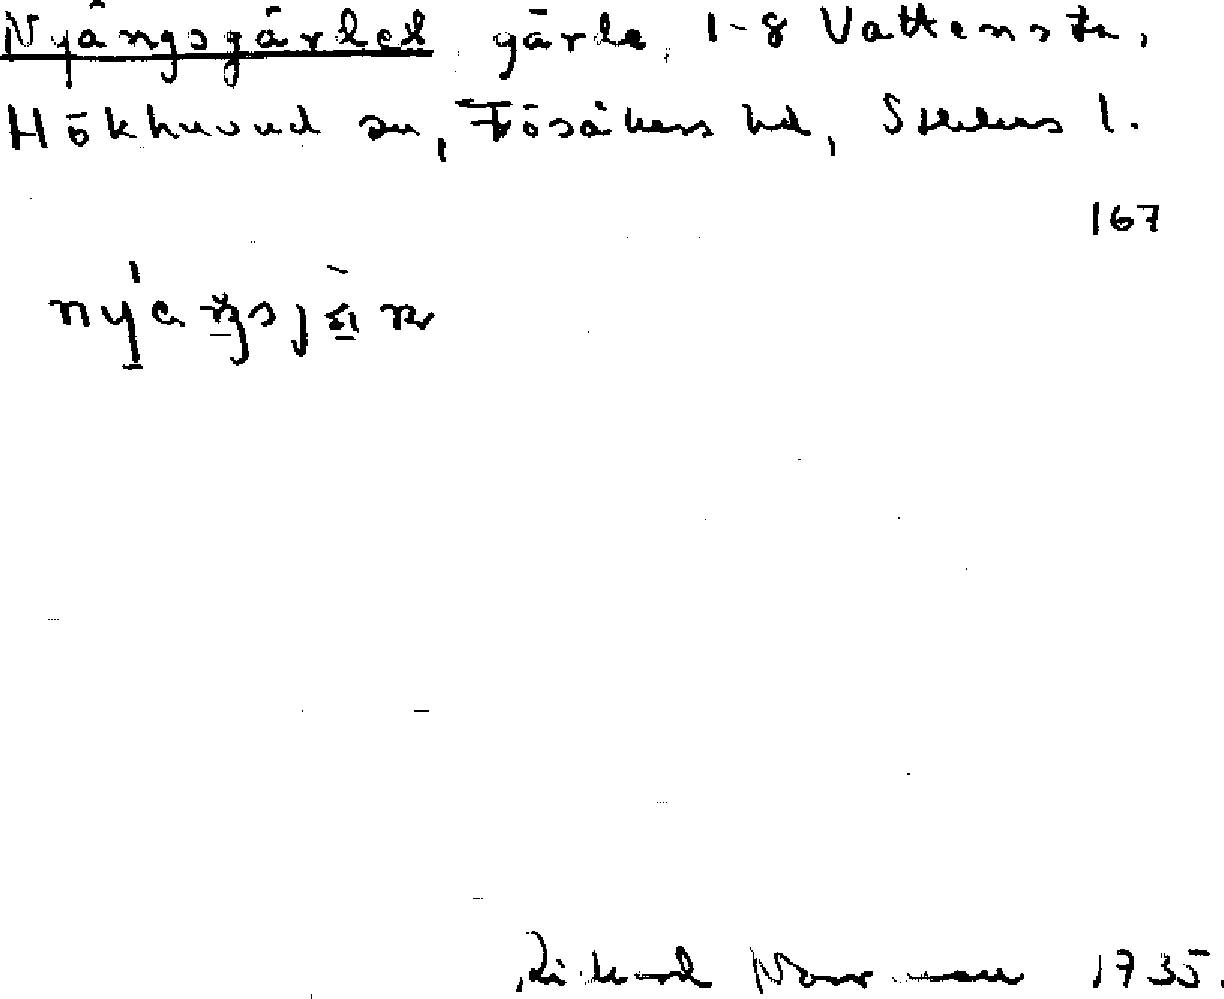 Nyängsgärdet, gärde, 1-8 Vattensta,
Hökhuvud sn, Frösåkers hd, Sthlms l.
167
Rikard Norrman 1935.